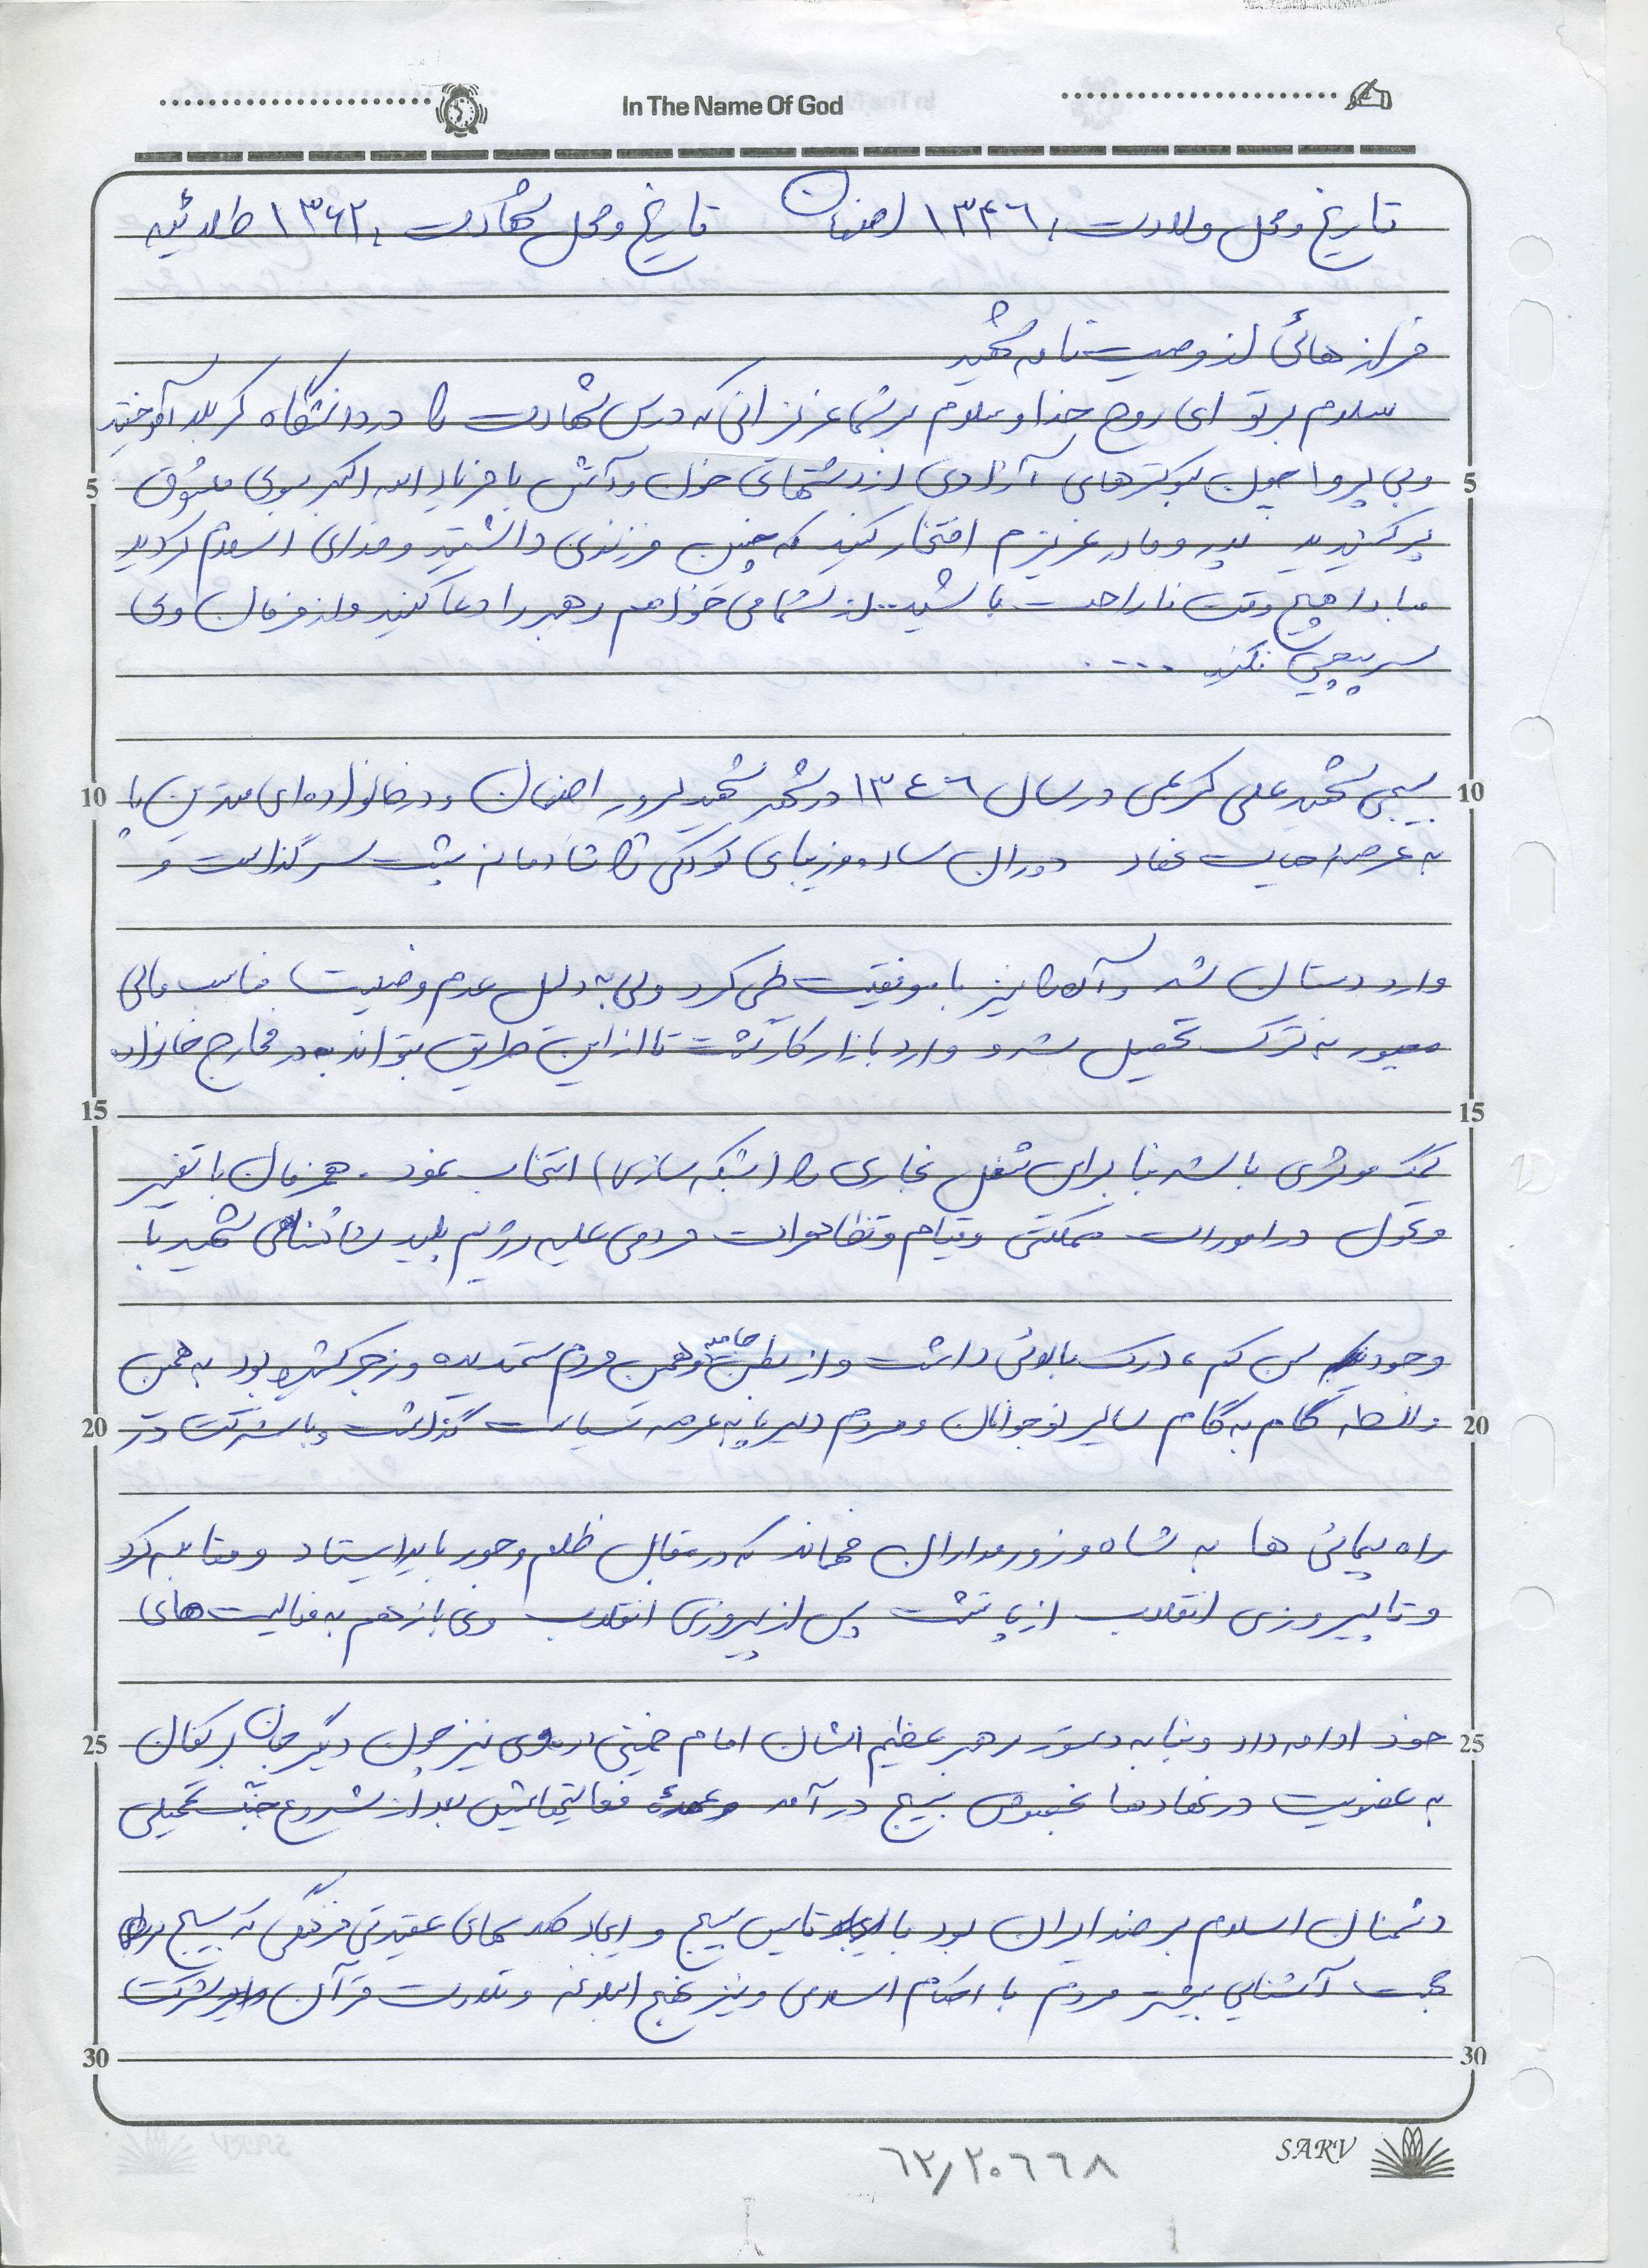 In The Name Of God
تاریخ و محل ولادت: ۱۳۴۶ اصفهان تاریخ و محل شهادت: ۱۳۶۲ طلائیه
فرازهائی از وصیت نامه شهید
سلام بر تو ای روح خدا و سلام بر شما عزیزانی که درس شهادت را در دانشگاه کربلا آموختید
5 و بی پروا چون کبوترهای آزادی از دشتهای خون و آتش با فریاد الله اکبر بسوی معشوق 5
پر کشیدید پدر و مادر عزیزم افتخار کنید که چنین فرزندی داشتید و فدای اسلام کردید
مبادا هیچ وقت ناراحت باشید.. از شما می خواهم رهبر را دعا کنید و از فرمان وی
سرپیچی نکنید ....
10 بسیجی شهید علی کریمی در سال ۱۳٤٦ در شهر شهید پرور اصفهان و در خانواده ای متدین پا 10
به عرصه حیات نهاد دوران ساده و زیبای کودکی را شادمانه پشت سر گذاشت و
وارد دبستان شد و آن را نیز با موفقیت طی کرد ولی به دلیل عدم وضعیت مناسب مالی
مجبور به ترک تحصیل شد و وارد بازار کار گشت تا از این طریق بتواند به در مخارج خانواده
15 15
کمک موثری باشد بنابراین شغل نجاری را (شبکه سازی) انتخاب نمود. همزمان با تغییر
و تحول در امورات مملکتی و قیام و تظاهرات مردمی علیه رژیم پلید شاهنشاهی شهید با
وجود سن کم، درک بالائی داشت و از بطن جامعه و همین مردم ستمدیده و زجر کشیده بود به همین
20 واسطه گام به گام سایر نوجوانان و مردم دلیر پا به عرصه سیاست گذاشت و با شرکت در 20
راه پیمائی ها به شاه و زورمداران فهماند که در مقابل ظلم و جور باید ایستاد و مقابله کرد
و تا پیروزی انقلاب از پا ننشست پس از پیروزی انقلاب وی باز هم به فعالیت های
25 خود ادامه داد و بنا به دستور رهبر عظیم الشان امام خمینی وی نیز چون دیگر جان بر کفان 25
به عضویت در نهادها بخصوص بسیج در آمد و عمده فعالیتهایش بعد از شروع جنگ تحمیلی
دشمنان اسلام بر ضد ایران بود با تاسیس بسیج و ایجاد کلاسهای عقیدتی فرهنگی که بسیج
جهت آشنایی بیشتر مردم با احکام اسلامی و نیز نهج البلاغه و تلاوت قرآن شرکت
30 30
SARV
٦٢/٢٠٦٦٨